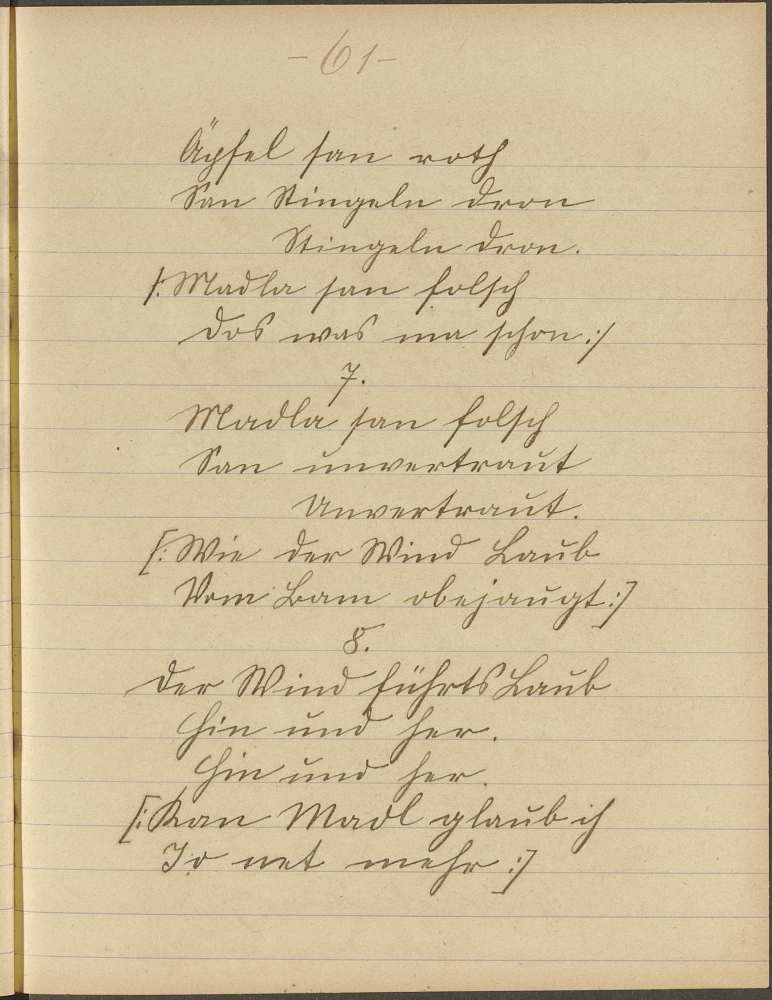 -61-
Äpfel san roth
San Stingeln dron
Stingeln dron.
/: Madla san folsch
Dos was ma schon :/
7.
Madla san folsch
San unvertraut
Unvertraut.
[: Wie der Wind Laub
Vom Bam obejaugt :]
8.
Der Wind führts Laub
Hin und her.
Hin und her.
[: Kan Madl glaub ich
Jo net mehr :]